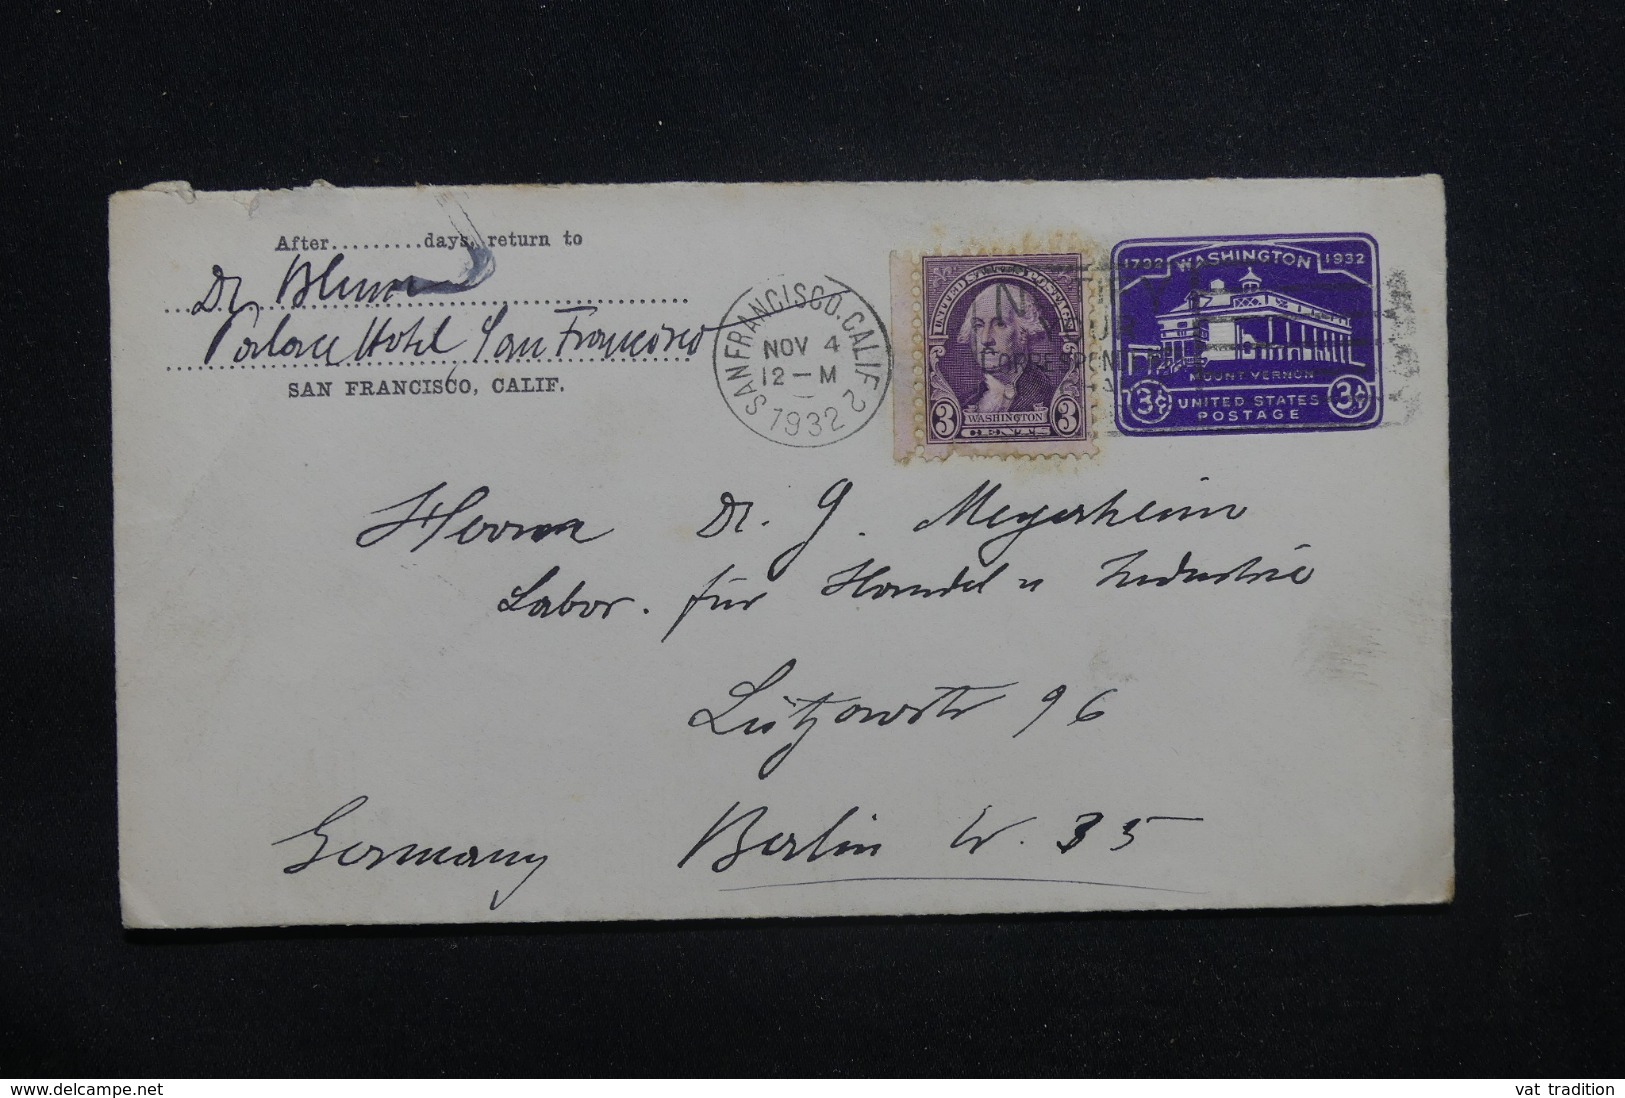 After.........days, return to
Dr. Blum
Palace Hotel San Francisco
SAN FRANCISCO, CALIF.
SAN FRANCISCO, CALIF. 2
NOV 4
12-M
1932
UNITED STATES POSTAGE
3 WASHINGTON 3
CENTS
NOTIFY
YOUR
CORRESPONDENTS
1732 WASHINGTON 1932
MOUNT VERNON
3¢ UNITED STATES 3¢
POSTAGE
Herrn Dr. J. Meyerheim
Labor. für Handel u Industrie
Lützowstr 96
Germany Berlin W. 35
delcampe.net
vat tradition